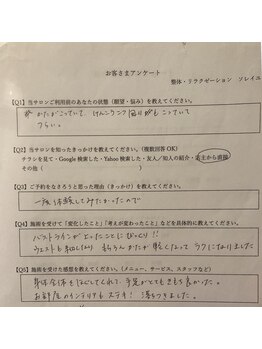 お客さまアンケート
整体・リラクゼーション ソレイユ
【Q1】当サロンご利用前のあなたの状態(願望・悩み)を教えてください。
かたがこっていて、けんこうこつ回りがもこっていて
つらい。
【Q2】当サロンを知ったきっかけを教えてください。(複数回答OK)
チラシを見て・Google検索した・Yahoo検索した・友人/知人の紹介・店主から直接
その他(
【Q3】ご予約をなさろうと思った理由(きっかけ)を教えてください。
一度体験してみたかったので
【Q4】施術を受けて「変化したこと」「考えが変わったこと」などを具体的に教えてください。
バストラインが上ったことにびっくり!!
ウェストも細くなり もちろん かたが軽くなって ラクになりました
【Q5】施術を受けた感想を教えてください。(メニュー、サービス、スタッフなど)
身体全体をほぐしてくれて、手足がとてもきもち良かった。
お部屋のインテリアもステキ! 落ちつきました。